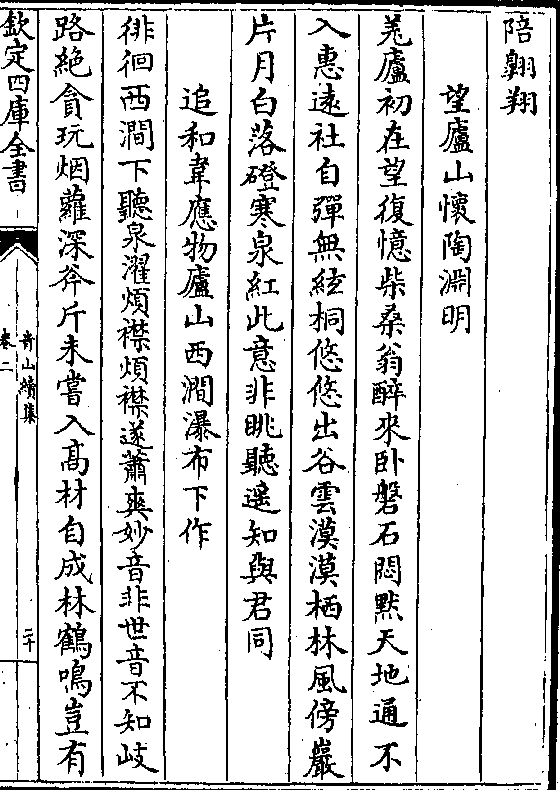 陪翺翔
望廬山懐陶淵明
羗廬初在望復憶柴桑翁醉來卧磐石悶黙天地通不
入惠遠社自彈無絃桐悠悠出谷雲漠漠栖林風傍巖
片月白落磴寒泉紅此意非眺聽遥知與君同
追和韋應物廬山西澗瀑布下作
徘徊西澗下聽泉濯煩襟煩襟遂蕭爽妙音非世音不知歧
路絶貪玩烟蘿深斧斤未嘗入髙材自成林鶴鳴豈有
欽定四庫全書
青山續集
卷二
二十